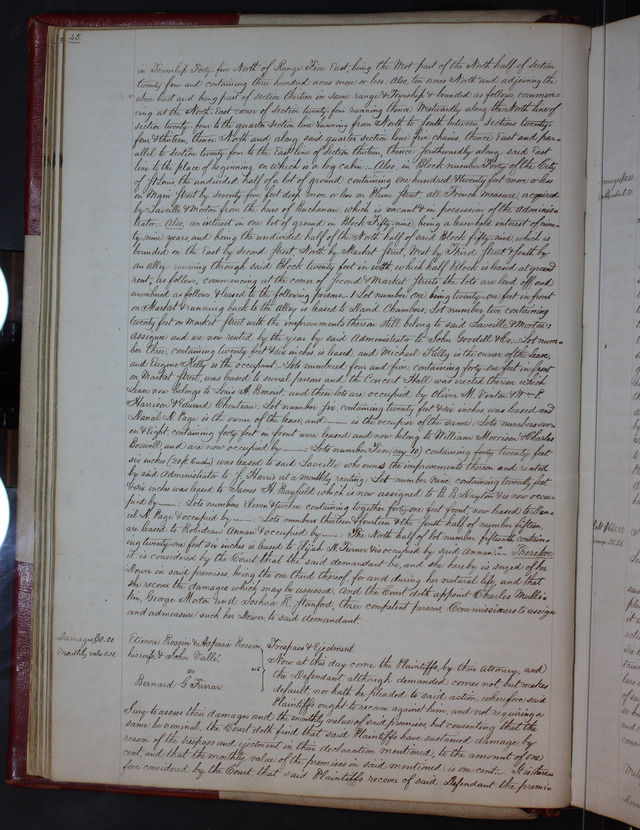 45.
in Township Forty-five North of Range Five East, being the West part of the North half of Section
twenty four and containing three hundred acres more or less. Also, ten acres North and adjoining the
above tract and being part of section thirteen in same range & Township & bounded as follows, commen-
cing at the North East corner of section twenty four running thence Westwardly along the North line of
section twenty-four to the quarter section line running from North to South between sections twenty
four & thirteen, thence North along said quarter section line five chains, thence East and par-
allel to section twenty four to the East line of section thirteen, thence southwardly along said East
line to the place of beginning on which is a log cabin:— Also, in Block number Forty of the City
of St Louis the undivided half of a lot of ground containing one hundred & twenty feet more or less
on Main Street by seventy-five feet deep more or less on Plum Street, all French measure, acquired
by Laveille & Morton from the heirs of Buchanan, which is vacant & in possession of the Adminis-
trator. Also, an interest in one lot of ground in Block Fifty-nine, being a leasehold interest of nine-
ty-nine years, and being the undivided half of the North half of said Block fifty-nine, which is
bounded on the East by Second Street, North by Market Street, West by Third Street & South by
an alley running through said Block twenty feet in width, which half Block is leased at ground
rent, as follows, commencing at the corner of Second & Market Streets the lots are laid off and
numbered as follows & leased to the following persons: Lot number one, being twenty-one feet in front
on Market & running back to the alley is leased to Ward Chambers: Lot number two containing
twenty feet on Market Street with the improvements thereon still belong to said Laveille & Morton's
Assignee and are now rented by the year by said Administrator to John Goodell & Co. Lot num-
ber three, containing twenty feet & six inches is leased, and Michael Kelly is the owner of the lease,
and Eugene Kelly is the occupant: Lots numbered four and five, containing forty-one feet in front
on Market Street, was leased to several persons and the Concert Hall was erected thereon which
Lease now belongs to Louis A. Benoist, and these lots are occupied by Oliver M. Vinton & Wm P.
Harrison & Edward Chouteau: Lot number six containing twenty feet & six inches, was leased and
Danal N. Page is the owner of the lease, and —— is the occupier of the same: Lots numbers sev-
en & Eight containing forty feet in front were leased and now belong to William Morrison & Charles
Boswell, and are now occupied by ——: Lots number Ten, (say 10) containing forty twenty feet
six inches (20 ft 6 inches) was leased to said Laveille who owns the improvements thereon and rented
by said Administrator to J. Harris at a monthly renting: Lot number nine containing twenty feet
& six inches was leased to James H. Barfield which is now assigned to B. B. Dayton & is now occu-
pied by ——: Lots numbers eleven & twelve, containing together forty-one feet front, now leased to Dan-
iel N. Page & occupied by ——: Lots numbers thirteen & fourteen & the South half of number fifteen
are leased to Robideau Annan & occupied by ——: The North half of lot number fifteenth contain-
ing twenty-one feet six inches is leased to Elijah N. Turner & is occupied by said Annan:— Therefore
it is considered by the Court that the said demandant be, and she hereby is seized of her
Dower in said premises being the one third thereof, for and during her natural life, and that
she recover the damages which may be assessed. And the Court doth appoint Charles Mulli-
kin, George Morton and Joshua R. Stanford, three competent persons, Commissioners to assign
and admeasure such her Dower to said demandant.
Damages, $0.01.
Monthly value 0.01.
Etienne Rossin & Aspasie Rossin
his wife & John Vallé,
vs
Bernard G. Farrar
Trespass & Ejectment
Now at this day come the Plaintiffs, by their Attorney, and
the Defendant although demanded comes not, but makes
default nor hath he pleaded to said action, wherefore said
Plaintiffs ought to recover against him, and not requiring a
Jury to assess their damages and the monthly value of said premises but consenting that the
same be nominal, the Court doth find that said Plaintiffs have sustained damage by
reason of the trespass and ejectment in their declaration mentioned, to the amount of one
cent, and that the monthly value of the premises in said mentioned is one cent.— It is there-
fore considered by the Court that said Plaintiffs recover of said Defendant the premis